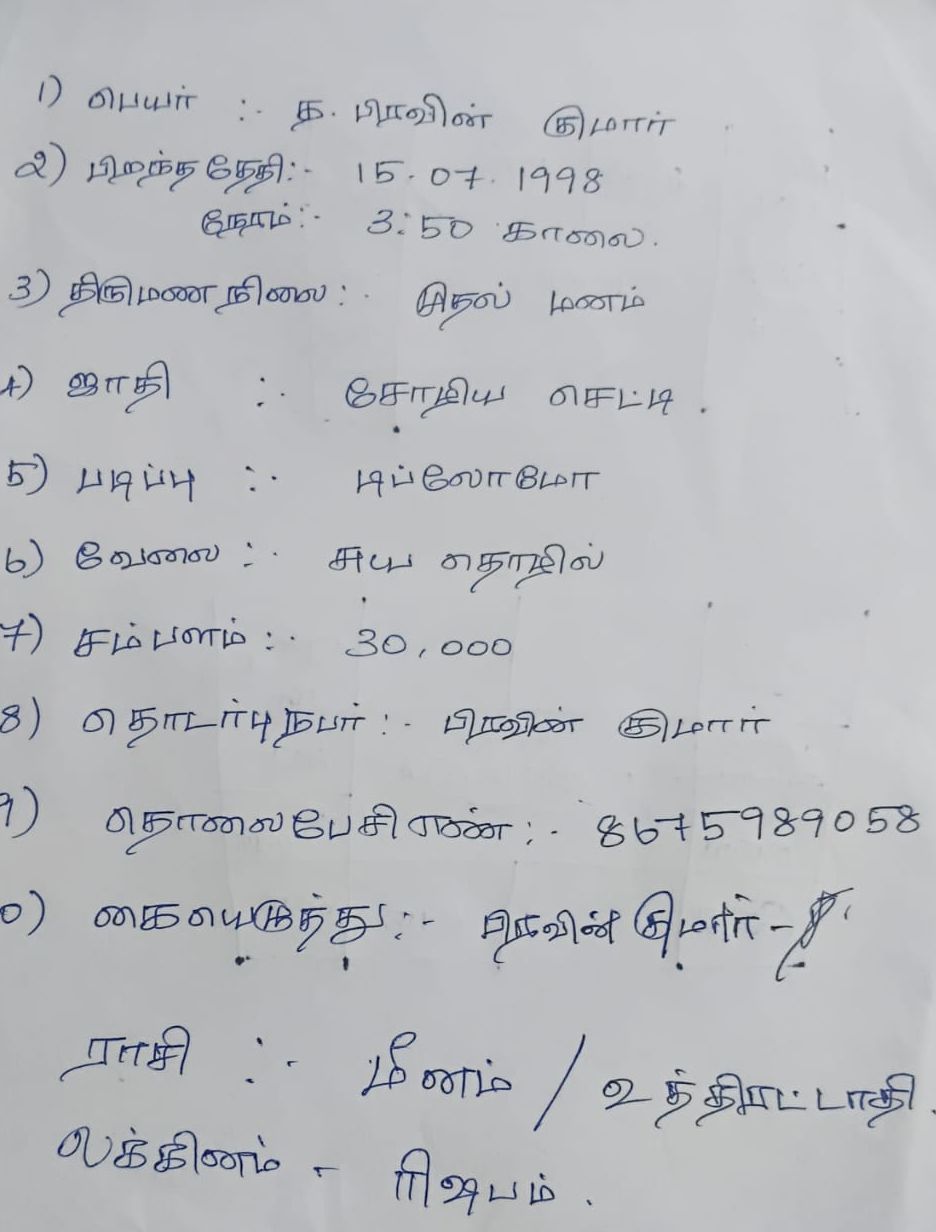 1) பெயர் :- த. பிரவின் குமார்
2) பிறந்த தேதி:- 15.07.1998
நேரம்:- 3:50 காலை.
3) திருமண நிலை :- முதல் மனம்
4) ஜாதி :- சோழிய செட்டி .
5) படிப்பு :- டிப்லோமோ
6) வேலை :- சுய தொழில்
7) சம்பளம் :- 30,000
8) தொடர்பு நபர் :- பிரவின் குமார்
9) தொலைபேசி எண் :- 8675989058
0) கையெழுத்து :- பிரவின் குமார் -
ராசி :- மீனம் / உத்திரட்டாதி.
லக்கினம் - ரிஷபம் .